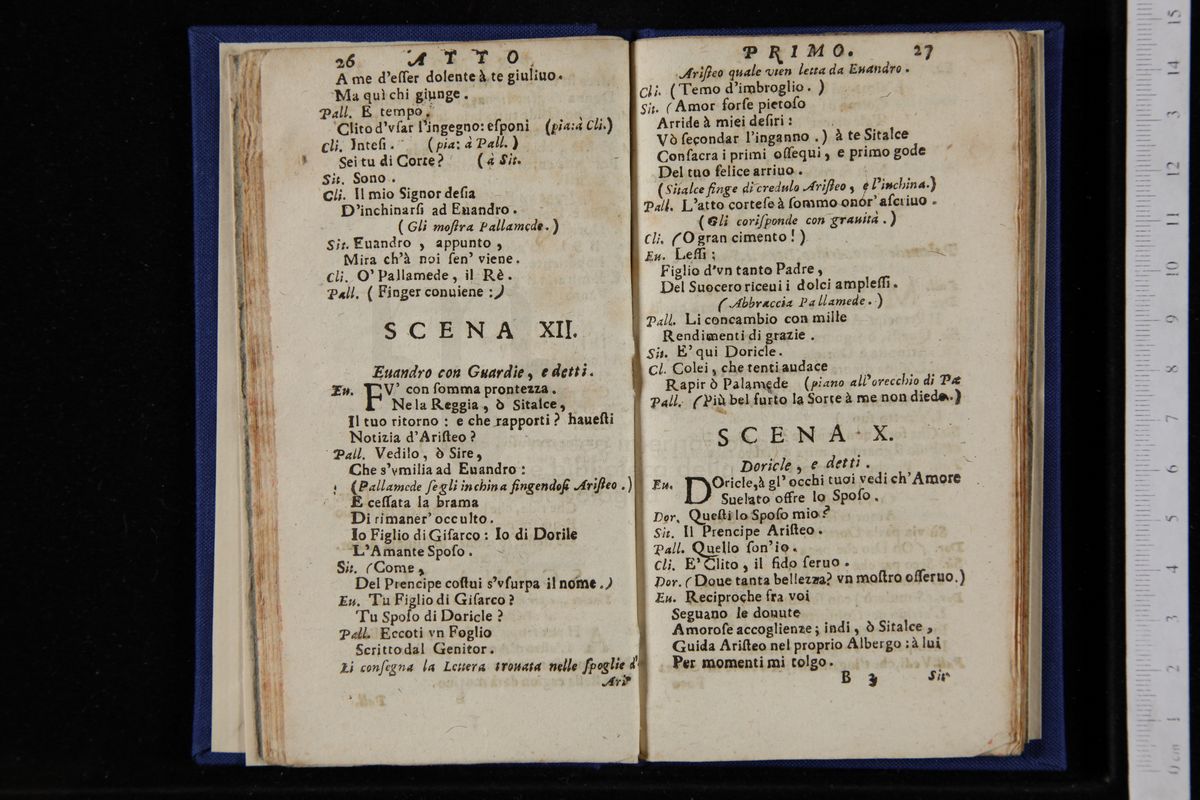 26 ATTO
A me d'eſſer dolente à te giuliuo.
Ma quì chi giunge.
Pall. E tempo.
Clito d'vſar l'ingegno: eſponi (pia: à Cli.)
Cli. Inteſi. (pia: à Pall.)
Sei tu di Corte? (à Sit.
Sit. Sono.
Cli. Il mio Signor deſia
D'inchinarſi ad Euandro.
(Gli moſtra Pallamede.)
Sit. Euandro, appunto,
Mira ch'à noi ſen' viene.
Cli. O' Pallamede, il Rè.
Pall. (Finger conuiene:)
SCENA XII.
Euandro con Guardie, e detti.
Eu. FV' con ſomma prontezza.
Ne la Reggia, ò Sitalce,
Il tuo ritorno: e che rapporti? haueſti
Notizia d'Ariſteo?
Pall. Vedilo, ò Sire,
Che s'vmilia ad Euandro:
(Pallamede ſegli inchina fingendoſi Ariſteo.)
E ceſſata la brama
Di rimaner' occulto.
Io Figlio di Giſarco: Io di Dorile
L'Amante Spoſo.
Sit. (Come,
Del Prencipe coſtui s'vſurpa il nome.)
Eu. Tu Figlio di Giſarco?
Tu Spoſo di Doricle?
Pall. Eccoti vn Foglio
Scritto dal Genitor.
Li conſegna la Lettera trouata nelle ſpoglie d'
Ari-
PRIMO. 27
Ariſteo quale vien letta da Euandro.
Cli. (Temo d'imbroglio.)
Sit. (Amor forſe pietoſo
Arride à miei deſiri:
Vò ſecondar l'inganno.) à te Sitalce
Conſacra i primi oſſequi, e primo gode
Del tuo felice arriuo.
(Sitalce finge di credulo Ariſteo, e l'inchina.)
Pall. L'atto corteſe à ſommo onor' aſcriuo.
(Gli coriſponde con grauità.)
Cli. (O gran cimento!)
Eu. Leſſi;
Figlio d'vn tanto Padre,
Del Suocero riceui i dolci ampleſſi.
(Abbraccia Pallamede.)
Pall. Li concambio con mille
Rendimenti di grazie.
Sit. E' qui Doricle.
Cl. Colei, che tenti audace
Rapir ò Palamede (piano all'orecchio di Pa
Pall. (Più bel furto la Sorte à me non diede.)
SCENA X.
Doricle, e detti.
Eu. DOricle, à gl' occhi tuoi vedi ch'Amore
Suelato offre lo Spoſo.
Dor. Queſti lo Spoſo mio?
Sit. Il Prencipe Ariſteo.
Pall. Quello ſon'io.
Cli. E' Clito, il fido ſeruo.
Dor. (Doue tanta bellezza? vn moſtro oſſeruo.)
Eu. Reciproche fra voi
Seguano le douute
Amoroſe accoglienze; indi, ò Sitalce,
Guida Ariſteo nel proprio Albergo: à lui
Per momenti mi tolgo.
B 3 Sit